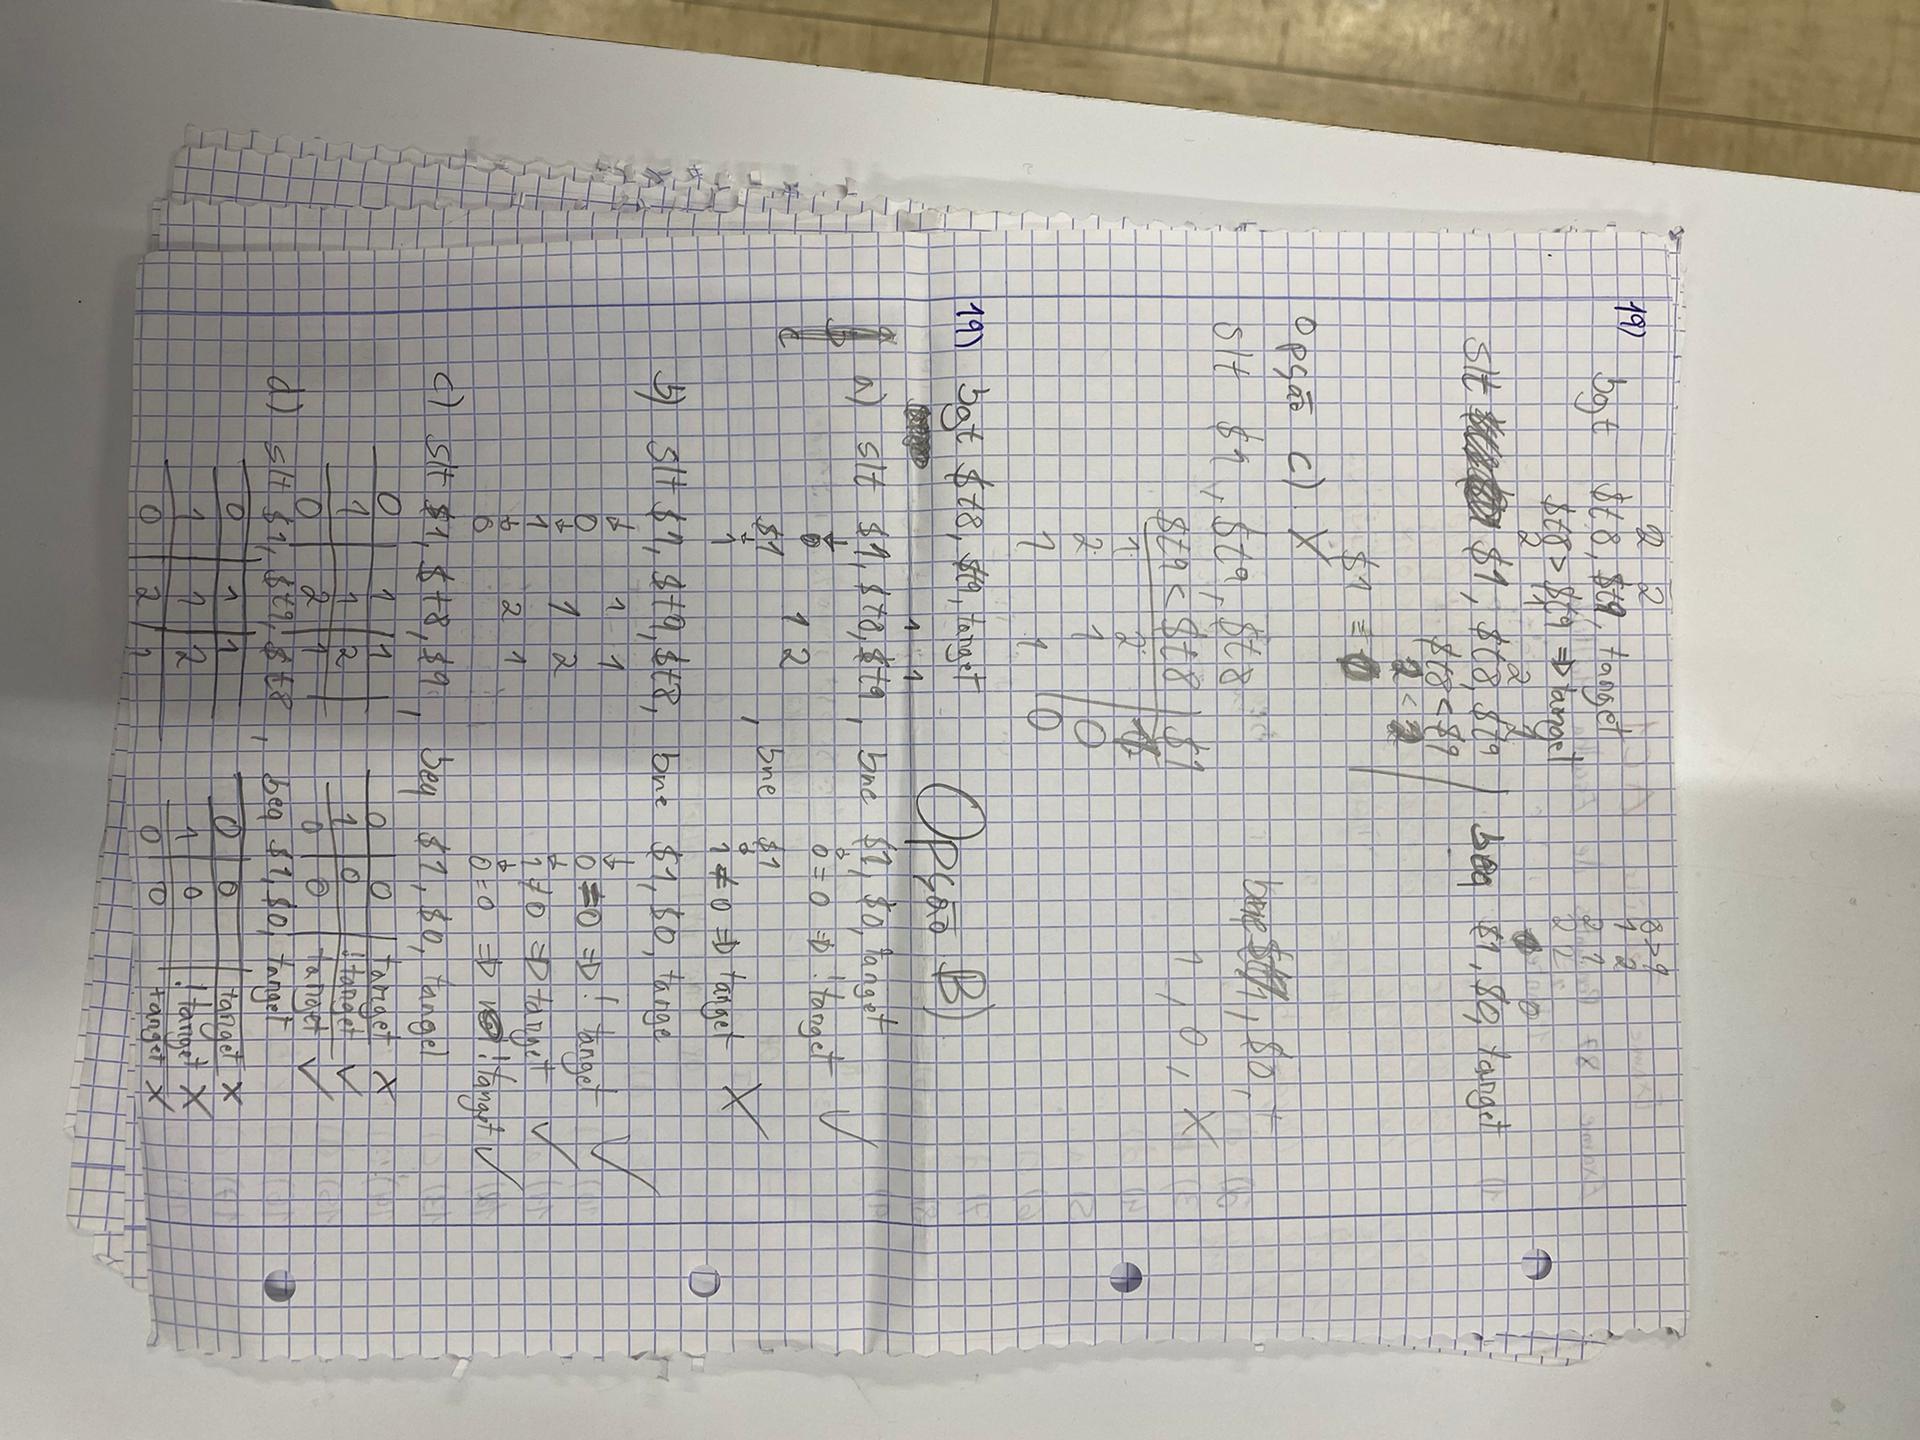 19)
2 2
bgt $t8, $t9, target
$t8 > $t9 => target
2 1
8 > 9
1 2
2 1
2 2
2 2
slt $1, $t8, $t9
$t8 < $9
2 < 2
$1 = 0
0 0
beq $1, $0, target
Opção c) X
slt $1, $t9, $t8
$t9 < $t8 | $1
1 2 1
2 1 0
1 1 0
bne $1, $0, t
1, 0, X
19) bgt $t8, $t9, target
Opção B)
1 1
a) slt $1, $t8, $t9, bne $1, $0, target
↓ ↓
0 0 = 0 => !target ✓
1 2
$1 , bne $1
↓ ↓
1 1 ≠ 0 => target X
b) slt $1, $t9, $t8, bne $1, $0, targe
↓ 1 1 ↓
0 0 = 0 => ! target ✓
↓ 1 2 ↓
1 1 ≠ 0 => target ✓
↓ 2 1 ↓
0 0 = 0 => !target ✓
c) slt $1, $t8, $9, beq $1, $0, target
0 | 1 | 1 0 | 0 | target X
1 | 1 | 2 1 | 0 | !target ✓
0 | 2 | 1 0 | 0 | target ✓
d) slt $1, $t9, $t8, beq $1, $0, target
0 | 1 | 1 0 | 0 | target X
1 | 1 | 2 1 | 0 | !target X
0 | 2 | 1 0 | 0 | target X